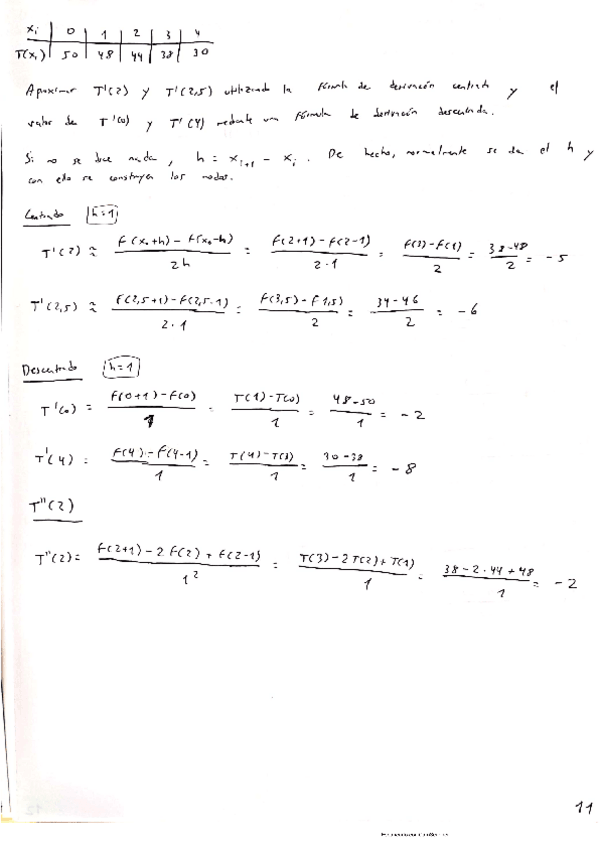 xᵢ | 0 | 1 | 2 | 3 | 4
T(xᵢ) | 50 | 48 | 44 | 38 | 30
Aproximar T'(2) y T'(2,5) utilizando la fórmula de derivación centrada y el
valor de T'(0) y T'(4) mediante una fórmula de derivación descentrada.
Si no se dice nada, h = xᵢ₊₁ - xᵢ. De hecho, normalmente se da el h y
con ello se construyen los nodos.
Centrado h=1
T'(2) ≈ (f(x₀+h) - f(x₀-h))/2h = (f(2+1) - f(2-1))/(2·1) = (f(3) - f(1))/2 = (38-48)/2 = -5
T'(2,5) ≈ (f(2,5+1) - f(2,5-1))/(2·1) = (f(3,5) - f(1,5))/2 = (34-46)/2 = -6
Descentrado h=1
T'(0) = (f(0+1) - f(0))/1 = (T(1) - T(0))/1 = (48-50)/1 = -2
T'(4) = (f(4) - f(4-1))/1 = (T(4) - T(3))/1 = (30-38)/1 = -8
T''(2)
T''(2) = (f(2+1) - 2f(2) + f(2-1))/1² = (T(3) - 2T(2) + T(1))/1 = (38 - 2·44 + 48)/1 = -2
11